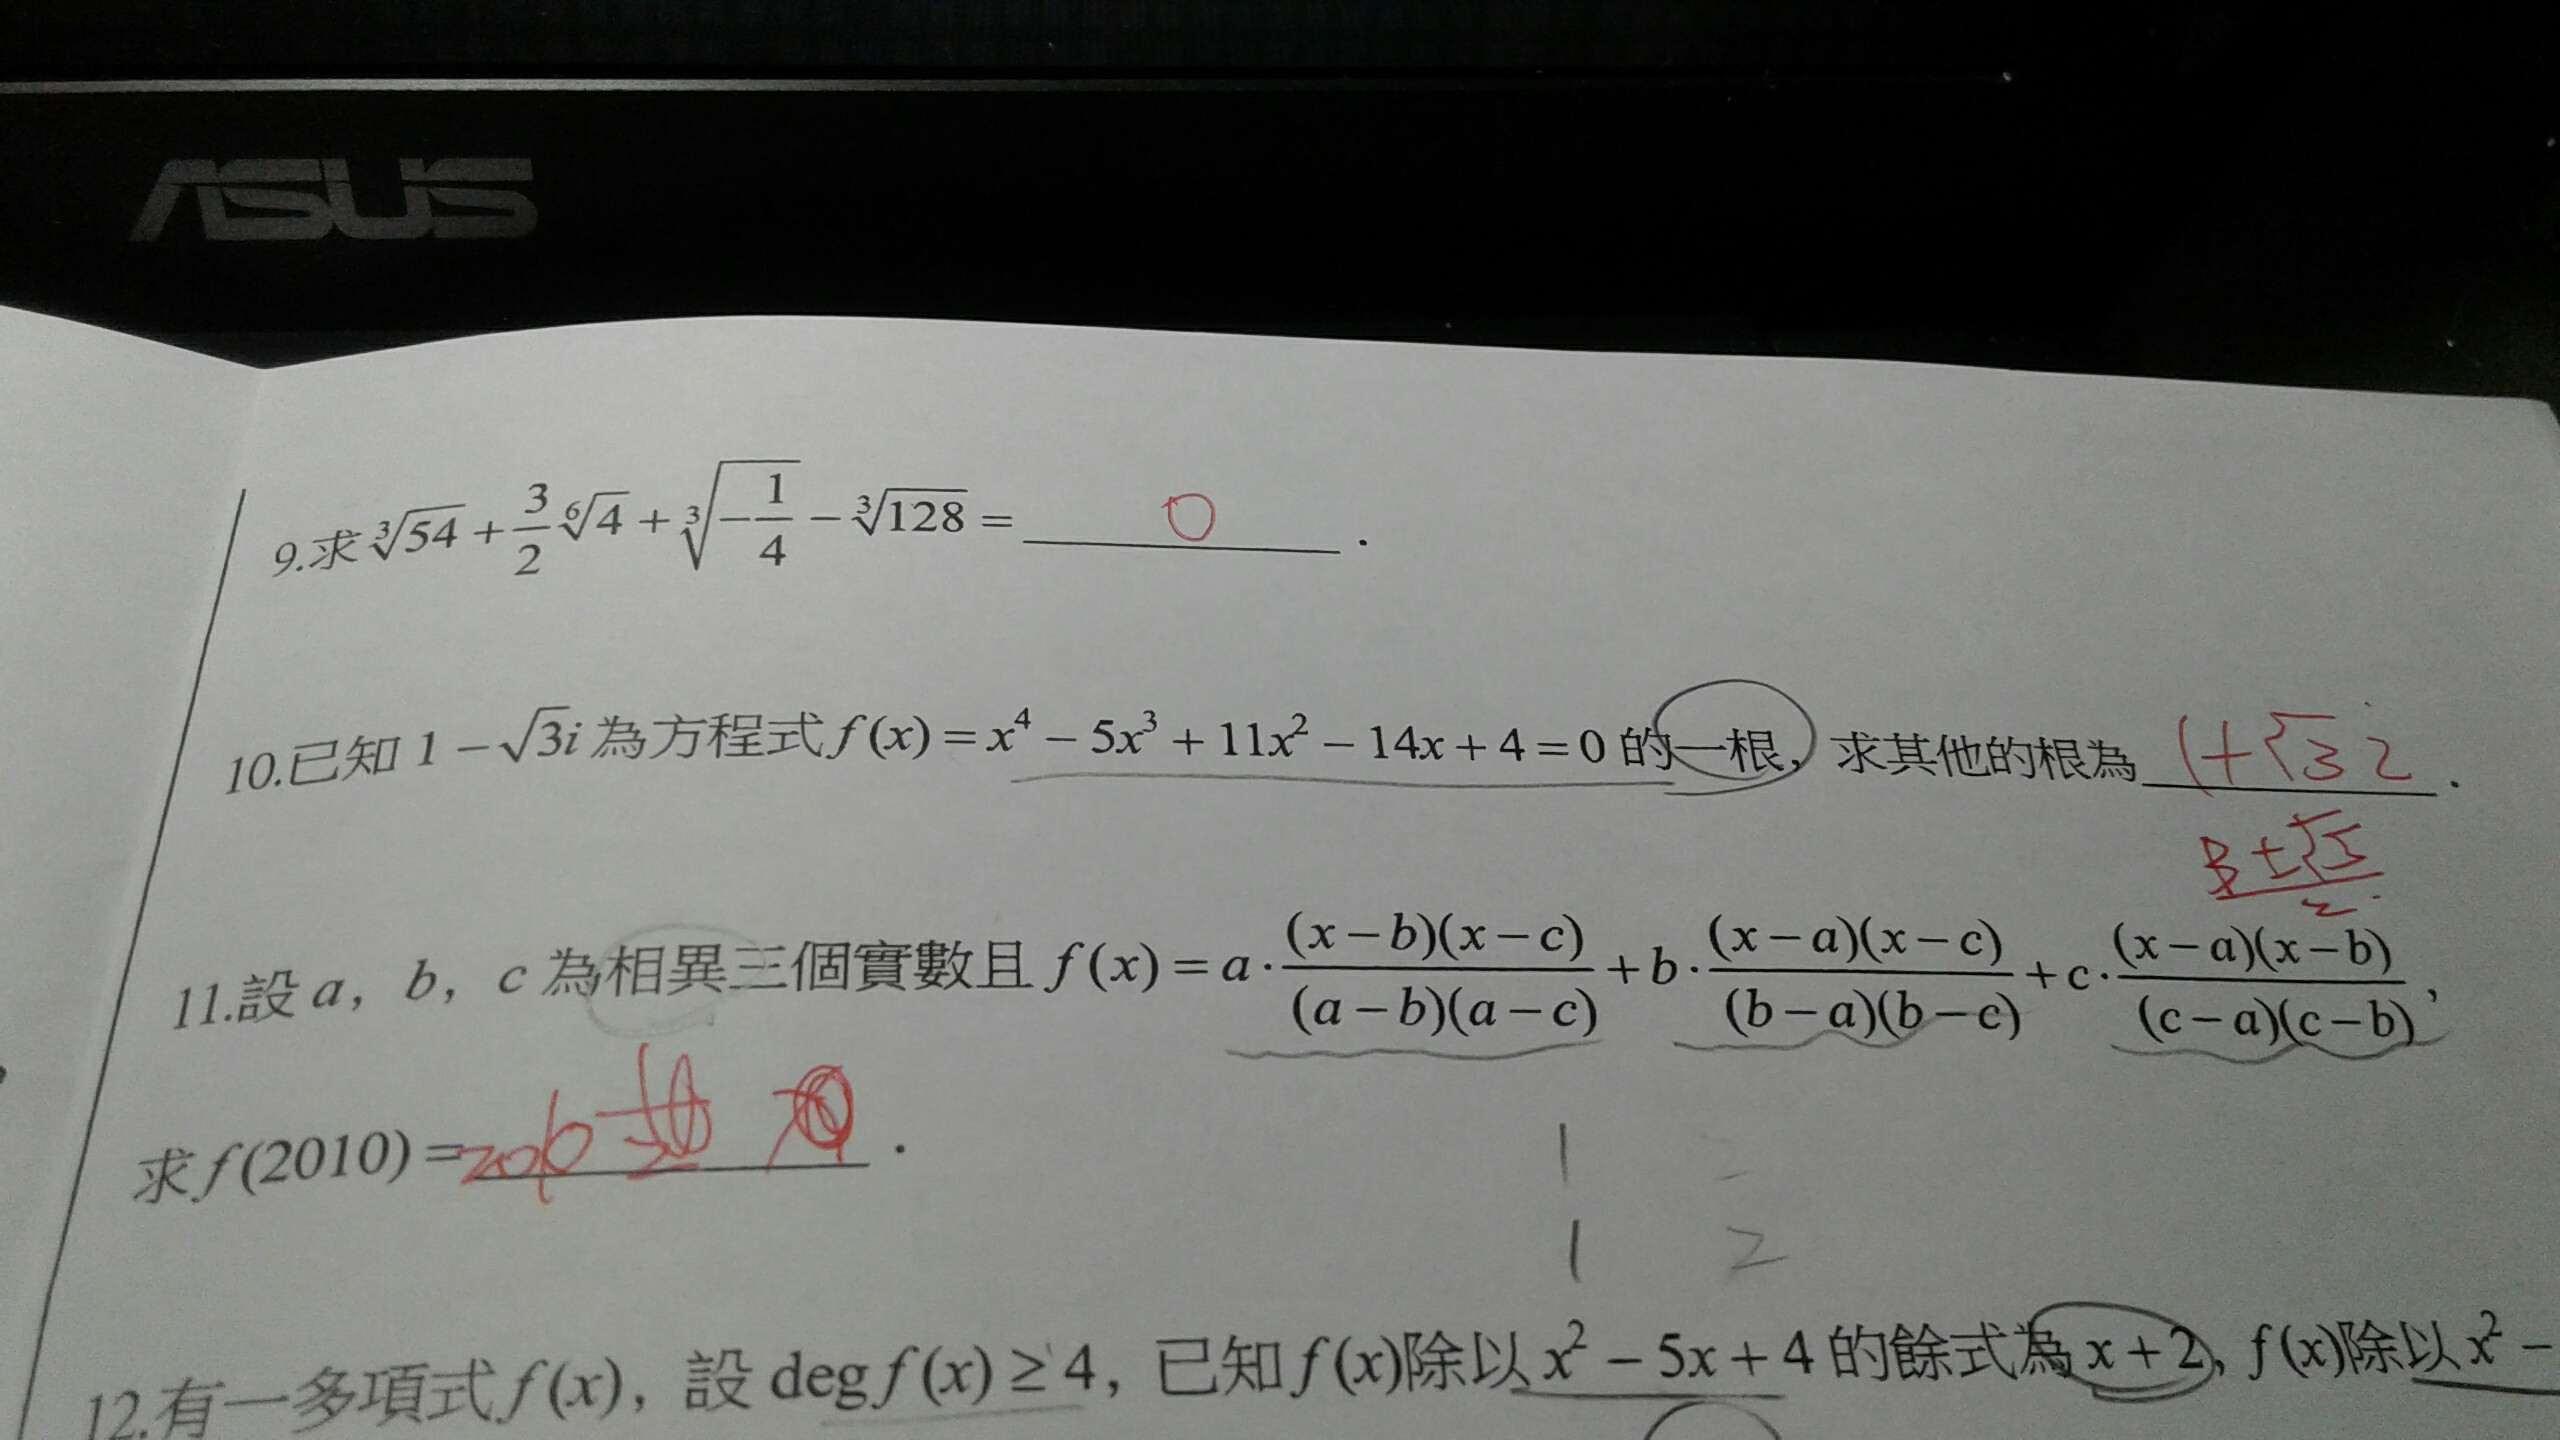 ASUS
9.求 ∛54 + 3/2 ⁶√4 + ∛(-1/4) - ∛128 = 0 .
10.已知 1 - √3i 為方程式 f(x) = x⁴ - 5x³ + 11x² - 14x + 4 = 0 的一根, 求其他的根為 1+√3 i .
3±√5 / 2
11.設 a, b, c 為相異三個實數且 f(x) = a · (x-b)(x-c)/(a-b)(a-c) + b · (x-a)(x-c)/(b-a)(b-c) + c · (x-a)(x-b)/(c-a)(c-b) ,
求 f(2010) = .
1
1 2
12.有一多項式 f(x), 設 deg f(x) ≥ 4, 已知 f(x)除以 x² - 5x + 4 的餘式為 x + 2, f(x)除以 x² -